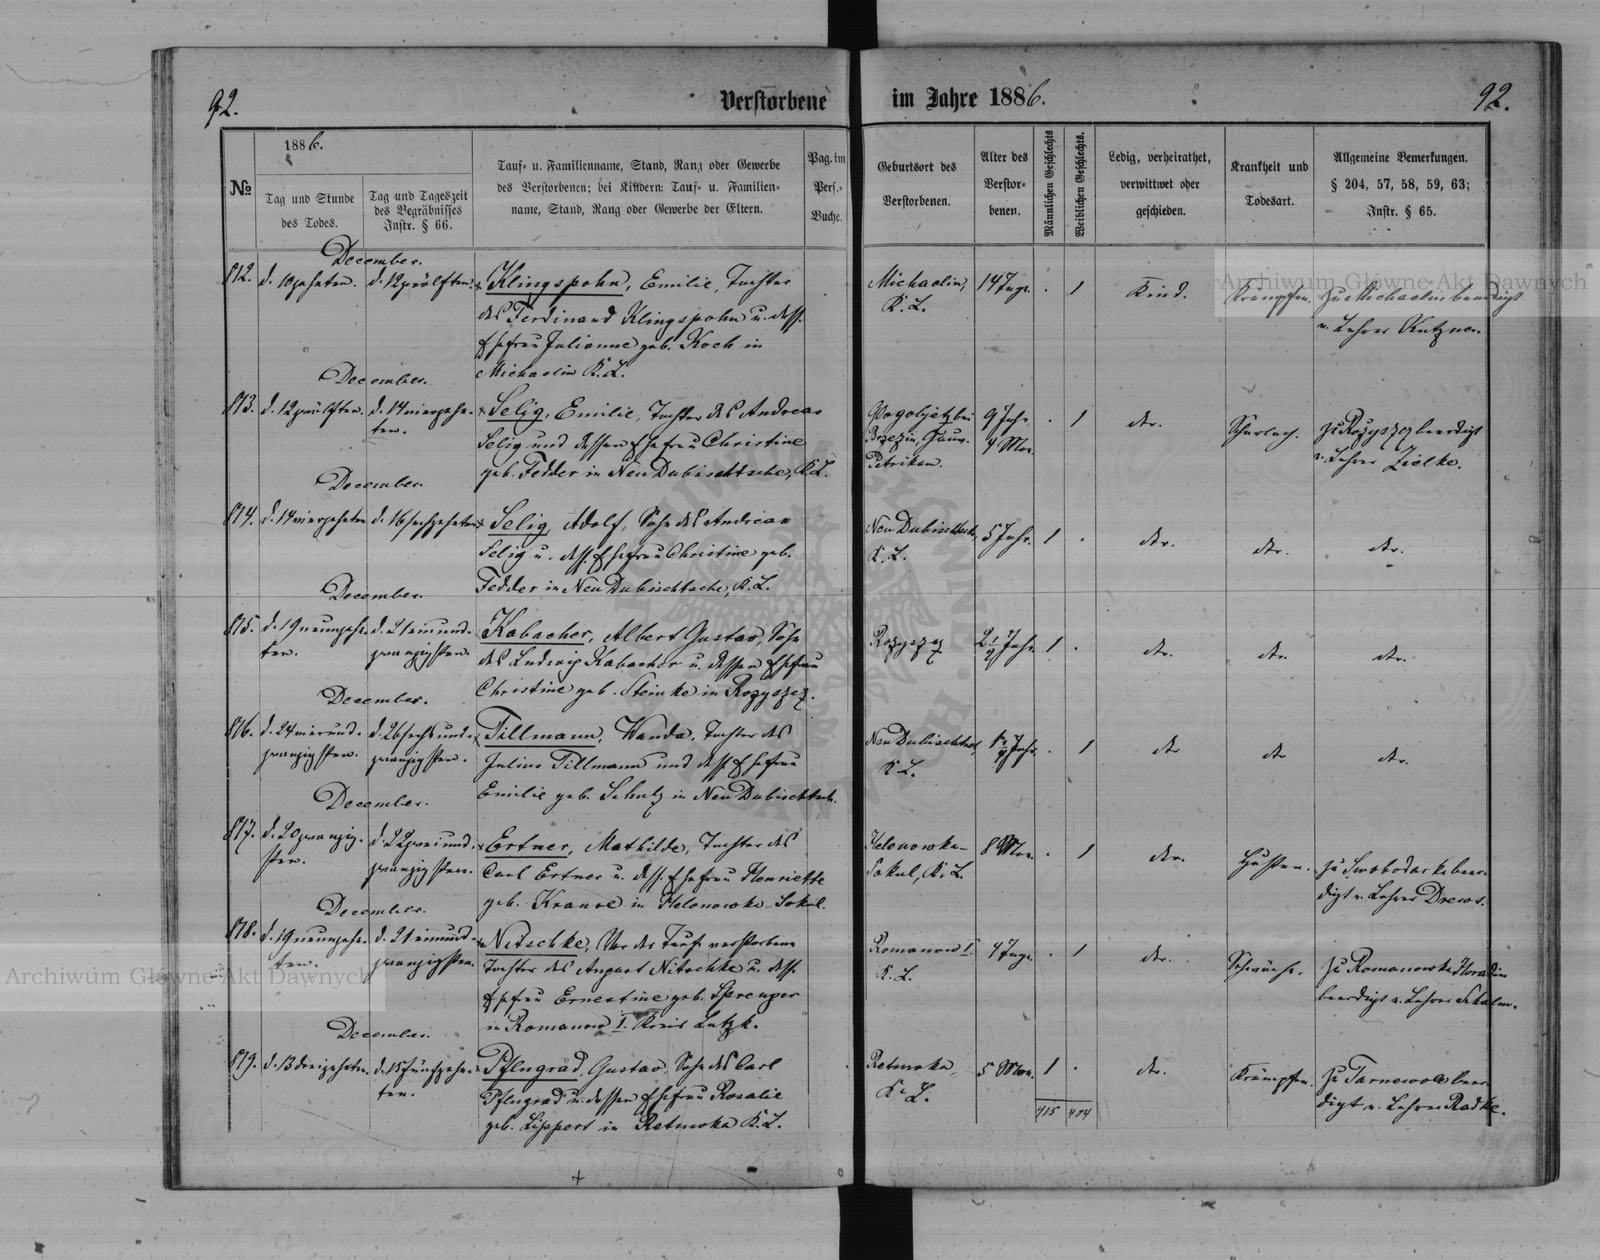 92.
Verstorbene
im Jahre 1886.
92.
№
1886.
Tag und Stunde
des Todes.
Tag und Tageszeit
des Begräbnisses
Instr. § 66.
Tauf- u. Familienname, Stand, Rang oder Gewerbe
des Verstorbenen; bei Kindern: Tauf- u. Familien-
name, Stand, Rang oder Gewerbe der Eltern.
Pag. im
Pers.-
Buche.
Geburtsort des
Verstorbenen.
Alter des
Verstor-
benen.
Männlichen Geschlechts
Weiblichen Geschlechts.
Ledig, verheirathet,
verwittwet oder
geschieden.
Krankheit und
Todesart.
Allgemeine Bemerkungen.
§ 204, 57, 58, 59, 63;
Instr. § 65.
December.
812.
d. 10 zehnten.
d. 12 zwölften.
Klingspohn, Emilie, Tochter
des Ferdinand Klingspohn u. dess.
Ehefrau Julianne geb. Koch in
Michaelin K. L.
Michaelin,
K. L.
14 Tage.
1
Kind.
Krämpfen.
zu Michaelin beerdigt
v. Lehrer
December.
813.
d. 12 zwölften.
d. 14 vierzehn-
ten.
Selig, Emilie, Tochter des Andreas
Selig und dessen Ehefrau Christine
geb. Fedder in Neu Dubischtsche, K. L.
bei
Brzezin, Gouv.
Petrikau.
9 Jahr.
4 Mon.
1
dto.
Scharlach.
zu Rozyszcz beerdigt
v. Lehrer Zielke.
December.
814.
d. 14 vierzehnten
d. 16 sechzehnten
Selig, Adolf, Sohn des Andreas
Selig u. dess. Ehefrau Christine geb.
Fedder in Neu Dubischtsche, K. L.
Neu Dubischtsche,
K. L.
5 Jahr.
1
dto.
dto.
dto.
December.
815.
d. 19 neunzehn-
ten.
d. 21 einund-
zwanzigsten.
Kabacher, Albert Gustav, Sohn
des Ludwig Kabacher u. dessen Ehefrau
Christine geb. Steinke in Rozyszcz.
Rozyszcz
Jahr.
1
dto.
dto.
dto.
December.
816.
d. 24 vierund-
zwanzigsten.
d. 26 sechsund-
zwanzigsten.
Tillmann, Wanda, Tochter des
Julius Tillmann und dess. Ehefrau
Emilie geb. Schulz in Neu Dubischtsch.
Neu Dubischtsch
K L.
Jahr.
1
dto
dto
dto.
December.
817.
d. 20 zwanzig-
sten.
d. 22 zweiund-
zwanzigsten.
Ertner, Mathilde, Tochter des
Carl Ertner u. dess. Ehefrau Henriette
geb. Krause in Helenowka Sokul.
Helenowka-
Sokul, K. L.
8 Mon.
1
dto.
Husten.
zu Swobodarka beer-
digt v. Lehrer Drews.
December.
818.
d. 19 neunzehn-
ten.
d. 21 einund-
zwanzigsten.
Nitschke, Vor der Taufe verstorbene
Tochter des August Nitschke u. dess.
Ehefrau Ernestine geb. Sprenger
in Romanow I. Kreis Lutzk.
Romanow I.
K. L.
4 Tage.
1
dto.
Schwäche.
zu Romanowka
beerdigt v. Lehrer
December.
819.
d. 13 dreizehnten.
d. 15 fünfzehn-
ten.
Pflugrad, Gustav, Sohn des Carl
Pflugrad u. dessen Ehefrau Rosalie
geb. Lippert in Retowka K. L.
Retowka,
K. L.
5 Mon.
1
dto.
Krämpfen.
zu Tarnewola beer-
digt v. Lehrer Radke.
415
404
Archiwum Główne Akt Dawnych
Archiwum Główne Akt Dawnych